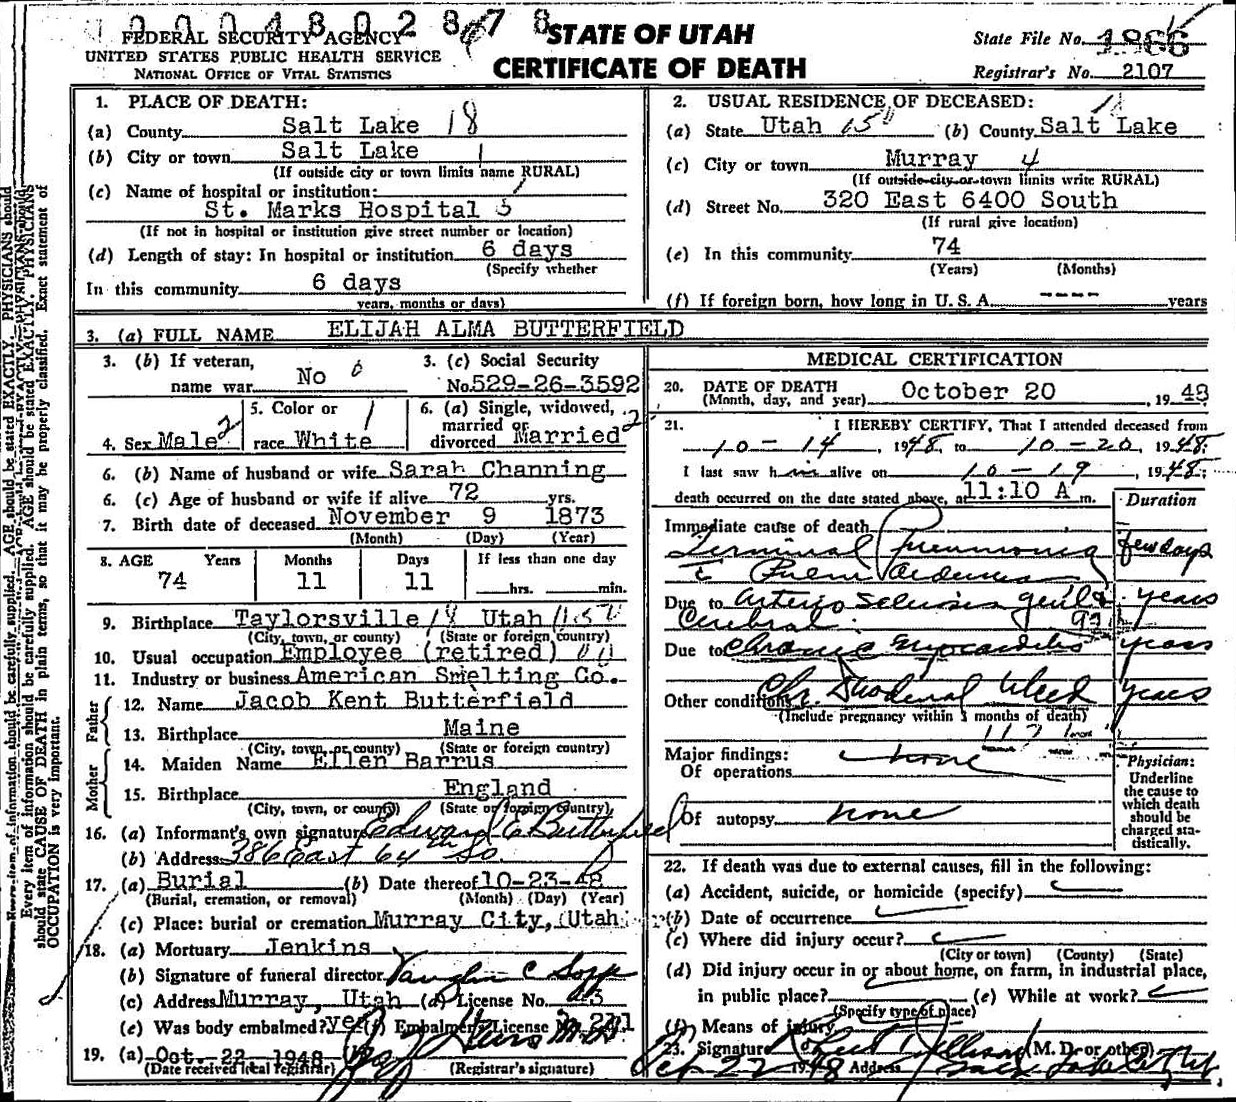 FEDERAL SECURITY AGENCY
UNITED STATES PUBLIC HEALTH SERVICE
NATIONAL OFFICE OF VITAL STATISTICS
STATE OF UTAH
CERTIFICATE OF DEATH
State File No. 1866
Registrar's No. 2107
1. PLACE OF DEATH:
(a) County Salt Lake 18
(b) City or town Salt Lake 1
(If outside city or town limits name RURAL)
(c) Name of hospital or institution:
St. Marks Hospital
(If not in hospital or institution give street number or location)
(d) Length of stay: In hospital or institution 6 days
(Specify whether
In this community 6 days
years, months or days)
2. USUAL RESIDENCE OF DECEASED:
(a) State Utah (b) County Salt Lake
(c) City or town Murray 4
(If outside city or town limits write RURAL)
(d) Street No. 320 East 6400 South
(If rural give location)
(e) In this community 74
(Years) (Months)
(f) If foreign born, how long in U. S. A. ---- years
3. (a) FULL NAME ELIJAH ALMA BUTTERFIELD
3. (b) If veteran, name war No
3. (c) Social Security No. 529-26-3592
4. Sex Male 2
5. Color or race White 1
6. (a) Single, widowed, married or divorced Married 2
6. (b) Name of husband or wife Sarah Channing
6. (c) Age of husband or wife if alive 72 yrs.
7. Birth date of deceased November 9 1873
(Month) (Day) (Year)
8. AGE Years Months Days If less than one day
74 11 11 hrs. min.
9. Birthplace Taylorsville Utah
(City, town, or county) (State or foreign country)
10. Usual occupation Employee (retired)
11. Industry or business American Smelting Co.
Father
12. Name Jacob Kent Butterfield
13. Birthplace Maine
(City, town, or county) (State or foreign country)
Mother
14. Maiden Name Ellen Barrus
15. Birthplace England
(City, town, or county) (State or foreign country)
16. (a) Informant's own signature Edward E Butterfield
(b) Address 386 East 64th So.
17. (a) Burial (b) Date thereof 10-23-48
(Burial, cremation, or removal) (Month) (Day) (Year)
(c) Place: burial or cremation Murray City, Utah
18. (a) Mortuary Jenkins
(b) Signature of funeral director Vaughn C
(c) Address Murray, Utah (d) License No.
(e) Was body embalmed? yes (f) Embalmer's License No.
19. (a) Oct. 22, 1948 (b)
(Date received local registrar) (Registrar's signature)
MEDICAL CERTIFICATION
20. DATE OF DEATH
(Month, day, and year) October 20, 19 48
21. I HEREBY CERTIFY, That I attended deceased from
10-14, 1948, to 10-20, 1948;
I last saw him alive on 10-19, 1948;
death occurred on the date stated above, at 11:10 A m.
Duration
Immediate cause of death
Terminal Pneumonia few days
Due to Arterio Sclerosis years
Cerebral
Due to Chronic Myocarditis years
Other conditions Chr. Duodenal Ulcer years
(Include pregnancy within 3 months of death)
Major findings:
Of operations none
Of autopsy none
Physician:
Underline
the cause to
which death
should be
charged sta-
tistically.
22. If death was due to external causes, fill in the following:
(a) Accident, suicide, or homicide (specify)
(b) Date of occurrence
(c) Where did injury occur?
(City or town) (County) (State)
(d) Did injury occur in or about home, on farm, in industrial place,
in public place? (e) While at work?
(Specify type of place)
(f) Means of injury
23. Signature (M. D. or other)
Oct 22 1948 Address Salt Lake City Ut
Every item of information should be carefully supplied. AGE should be stated EXACTLY. PHYSICIANS
should state CAUSE OF DEATH in plain terms, so that it may be properly classified. Exact statement of
OCCUPATION is very important.